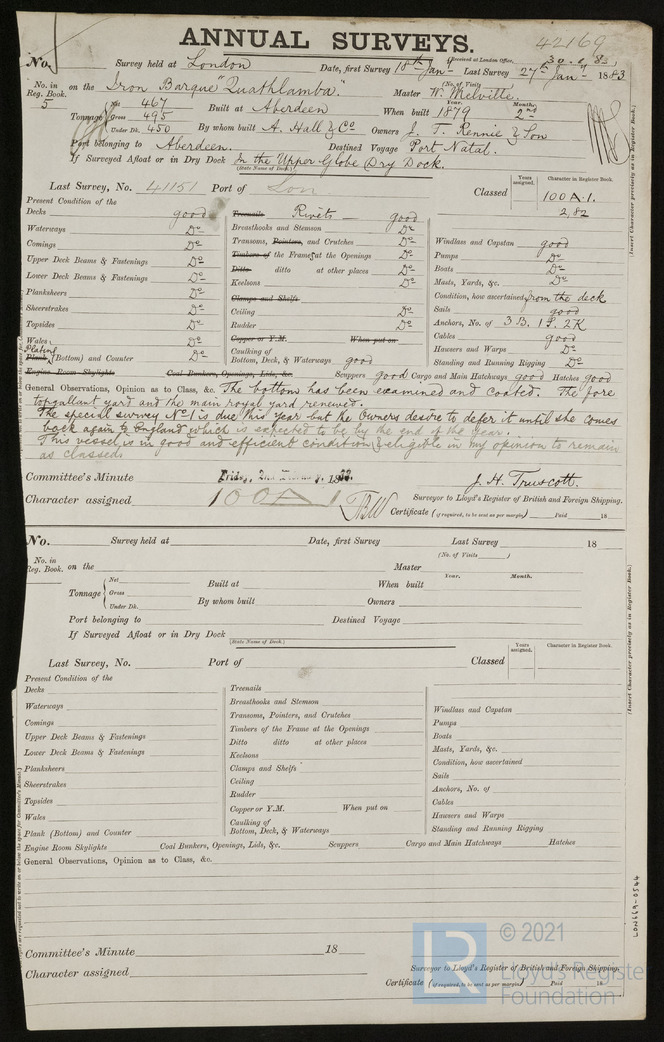 ANNUAL SURVEYS.
42169
No. Survey held at London Date, first Survey 18th Jan Last Survey 27th Jan 1883
Received at London Office,
(No. of Visits)
No. in Reg. Book. 5 on the Iron Barque "Quathlamba" Master W. Melville
Tonnage Net 467 Gross 495 Under Dk. 450 Built at Aberdeen When built Year. 1879 Month. 2
By whom built A. Hall & Co Owners J. T. Rennie & Son
Port belonging to Aberdeen. Destined Voyage Port Natal.
If Surveyed Afloat or in Dry Dock In the Upper Globe Dry Dock.
(State Name of Dock.)
Last Survey, No. 41151 Port of Lon Classed Years assigned. Character in Register Book. 100A.1. 2,82
(Insert Character precisely as in Register Book.)
Present Condition of the
Decks good
Waterways Do
Comings Do
Upper Deck Beams & Fastenings Do
Lower Deck Beams & Fastenings Do
Planksheers Do
Sheerstrakes Do
Topsides Do
Wales Do
Plating
Plank (Bottom) and Counter Do
Treenails Rivets good
Breasthooks and Stemson Do
Transoms, Pointers, and Crutches Do
Timbers of the Frames at the Openings Do
Ditto ditto at other places Do
Keelsons Do
Clamps and Shelfs
Ceiling Do
Rudder Do
Copper or Y.M. When put on
Caulking of Bottom, Deck, & Waterways good
Windlass and Capstan good
Pumps Do
Boats Do
Masts, Yards, &c. Do
Condition, how ascertained from the deck
Sails good
Anchors, No. of 3 B. 1 S. 2K
Cables good
Hawsers and Warps Do
Standing and Running Rigging Do
Engine Room Skylights Coal Bunkers, Openings, Lids, &c. Scuppers good Cargo and Main Hatchways good Hatches good
General Observations, Opinion as to Class, &c. The bottom has been examined and coated. The fore
topgallant yard and the main royal yard renewed.
The special survey No 1 is due this year but the Owners desire to defer it until she comes
back again to England which is expected to be by the end of the year.
This vessel is in good and efficient condition & eligible in my opinion to remain
as classed.
Committee's Minute 18
J. H. Truscott.
Character assigned 100A1
Surveyor to Lloyd's Register of British and Foreign Shipping.
Certificate (if required, to be sent as per margin) Paid 18
No. Survey held at Date, first Survey Last Survey 18
(No. of Visits )
No. in Reg. Book. on the Master
Tonnage Net Gross Under Dk. Built at When built Year. Month.
By whom built Owners
Port belonging to Destined Voyage
If Surveyed Afloat or in Dry Dock
(State Name of Dock.)
Last Survey, No. Port of Classed Years assigned. Character in Register Book.
(Insert Character precisely as in Register Book.)
Present Condition of the
Decks
Waterways
Comings
Upper Deck Beams & Fastenings
Lower Deck Beams & Fastenings
Planksheers
Sheerstrakes
Topsides
Wales
Plank (Bottom) and Counter
Treenails
Breasthooks and Stemson
Transoms, Pointers, and Crutches
Timbers of the Frame at the Openings
Ditto ditto at other places
Keelsons
Clamps and Shelfs
Ceiling
Rudder
Copper or Y.M. When put on
Caulking of Bottom, Deck, & Waterways
Windlass and Capstan
Pumps
Boats
Masts, Yards, &c.
Condition, how ascertained
Sails
Anchors, No. of
Cables
Hawsers and Warps
Standing and Running Rigging
Engine Room Skylights Coal Bunkers, Openings, Lids, &c. Scuppers Cargo and Main Hatchways Hatches
General Observations, Opinion as to Class, &c.
Committee's Minute 18
Character assigned
Surveyor to Lloyd's Register of British and Foreign Shipping.
Certificate (if required, to be sent as per margin) Paid 18
LON669-0544
LR
© 2021
Lloyd's Register
Foundation